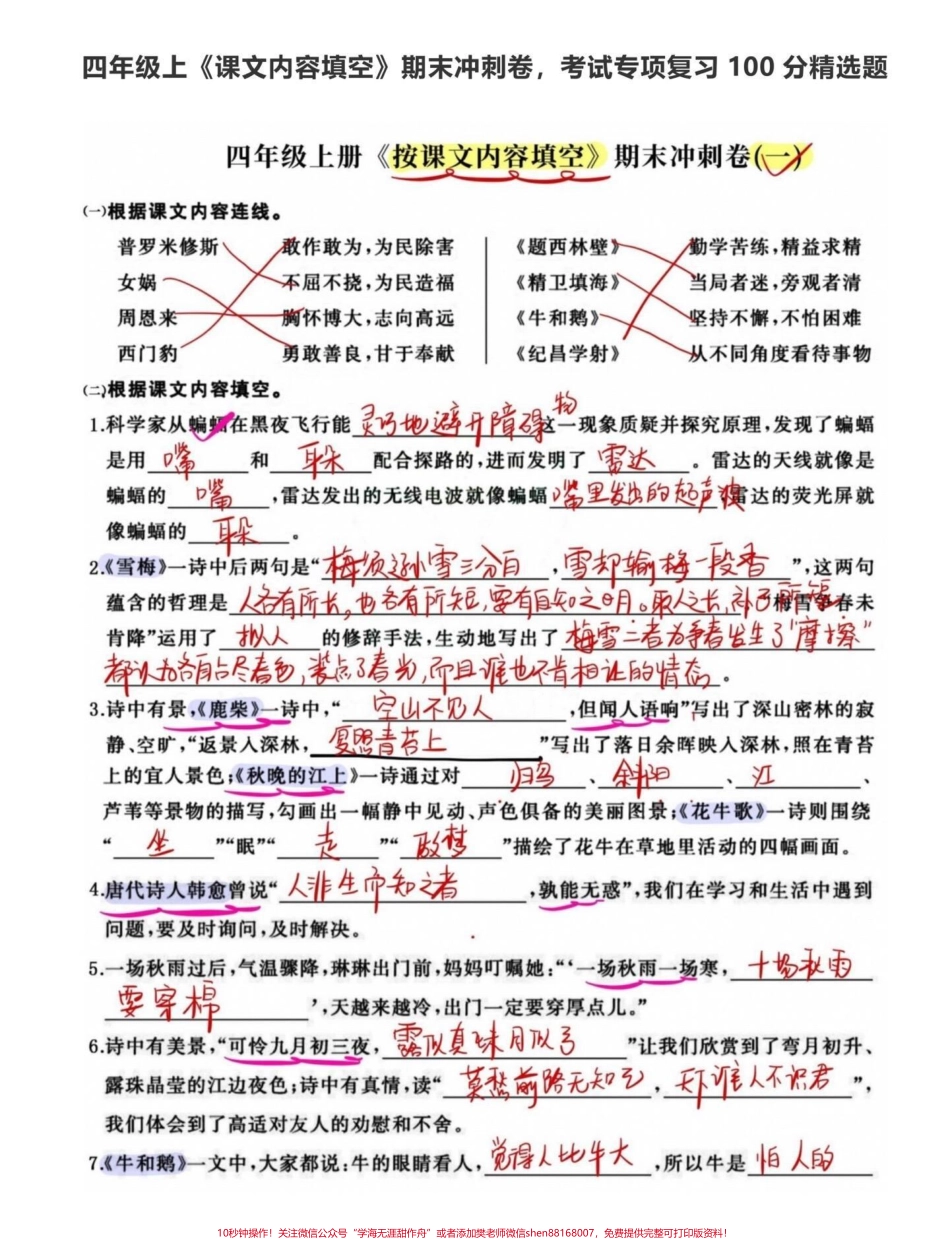 四年级上《课文内容填空》期末冲刺卷，考试专项复习 100 分精选题
四年级上册《按课文内容填空》期末冲刺卷(一)
(一)根据课文内容连线。
普罗米修斯 敢作敢为,为民除害 《题西林壁》 勤学苦练,精益求精
女娲 不屈不挠,为民造福 《精卫填海》 当局者迷,旁观者清
周恩来 胸怀博大,志向高远 《牛和鹅》 坚持不懈,不怕困难
西门豹 勇敢善良,甘于奉献 《纪昌学射》 从不同角度看待事物
(二)根据课文内容填空。
1.科学家从蝙蝠在黑夜飞行能灵巧地避开障碍物这一现象质疑并探究原理,发现了蝙蝠
是用 嘴 和 耳朵 配合探路的,进而发明了 雷达 。雷达的天线就像是
蝙蝠的 嘴 ,雷达发出的无线电波就像蝙蝠嘴里发出的超声波雷达的荧光屏就
像蝙蝠的 耳朵 。
2.《雪梅》一诗中后两句是“梅须逊雪三分白,雪却输梅一段香”,这两句
蕴含的哲理是人各有所长,也各有所短,要有自知之明。取人之长,补己所短“梅雪争春未
肯降”运用了 拟人 的修辞手法,生动地写出了梅雪二者为争春发生了“摩擦”
都认为各自占尽春色,装点了春光,而且谁也不肯相让的情态。
3.诗中有景,《鹿柴》一诗中,“ 空山不见人 ,但闻人语响”写出了深山密林的寂
静、空旷,“返景入深林, 复照青苔上 ”写出了落日余晖映入深林,照在青苔
上的宜人景色;《秋晚的江上》一诗通过对 归鸟 、斜阳 、江 、
芦苇等景物的描写,勾画出一幅静中见动、声色俱备的美丽图景;《花牛歌》一诗则围绕
“ 坐 ”“眠”“ 走 ”“ 做梦 ”描绘了花牛在草地里活动的四幅画面。
4.唐代诗人韩愈曾说“人非生而知之者 ,孰能无惑”,我们在学习和生活中遇到
问题,要及时询问,及时解决。
5.一场秋雨过后,气温骤降,琳琳出门前,妈妈叮嘱她:“‘一场秋雨一场寒, 十场秋雨
要穿棉 ’,天越来越冷,出门一定要穿厚点儿。”
6.诗中有美景,“可怜九月初三夜,露似真珠月似弓 ”让我们欣赏到了弯月初升、
露珠晶莹的江边夜色;诗中有真情,读“ 莫愁前路无知己 , 天下谁人不识君 ”,
我们体会到了高适对友人的劝慰和不舍。
7.《牛和鹅》一文中,大家都说:牛的眼睛看人,觉得人比牛大 ,所以牛是 怕人的
10秒钟操作！关注微信公众号“学海无涯甜作舟”或者添加樊老师微信shen88168007，免费提供完整可打印版资料！